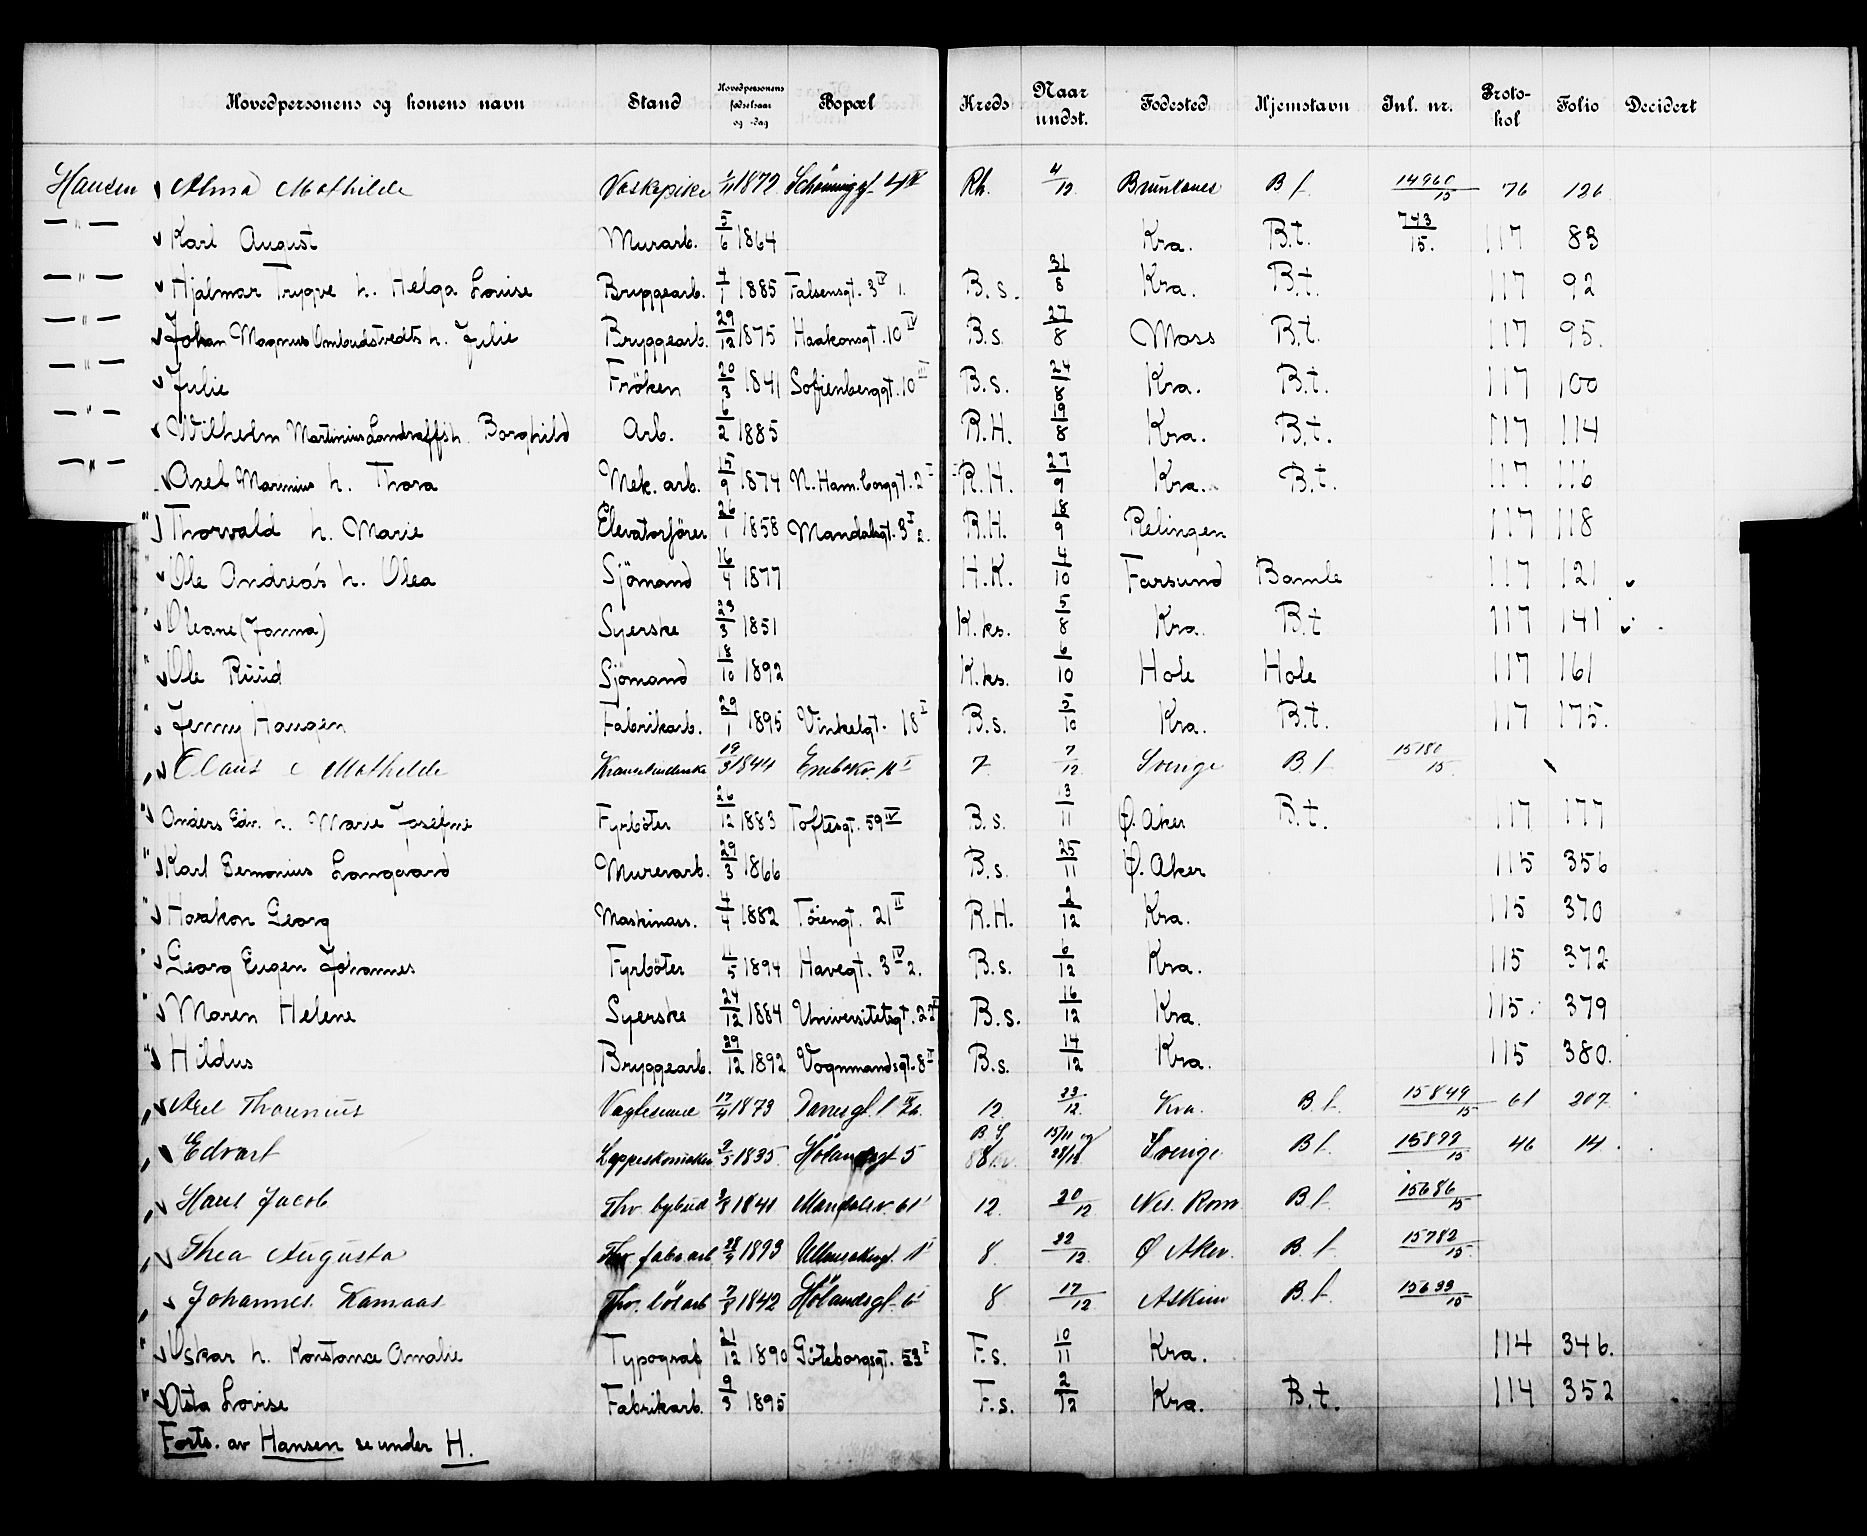 Hovedpersonens og konens navn Stand Hovedpersonens fødselsaar og -dag Bopæl Kreds Naar undst. Fødested Hjemstavn Jnl. nr. Proto-kol Folio Decidert
Hansen Alma Mathilde Vaskepike 1872 Schønningsgt 4 IV Rh. 4/12 B f. 14960/15 76 126
— " — Karl August Murarb. 5/6 1864 Kra. B.t. 743/15. 117 83
— " — Hjalmar Trygve h. Helga Louise Bryggearb. 7/1 1885 Falsensgt. 3 IV 1. B.s. 31/8 Kra. B.t. 117 92
— " — Johan Magnus Ombudstvedt h. Julie Bryggearb. 29/12 1875 Haakonsgt. 10 IV B.s. 27/8 Moss B.t. 117 95.
— " — Julie Fröken 20/3 1841 Sofienberggt. 10 III B.s. 24/8 Kra. B.t. 117 100
— " — Wilhelm Martinius h. Borghild Arb. 6/2 1885 R.H. 19/8 Kra. B.t. 117 114
— " — Axel Marinius h. Thora Mek. arb. 15/9 1874 N. Ham.borggt. 2 I R.H. 27/9 Kra. B.t. 117 116
" Thorvald h. Marie Elevatorförer 26/1 1858 Mandalsgt. 3 I 2. R.H. 18/9 Relingen 117 118
" Ole Andreas h. Olea Sjömand 16/4 1877 H.K. 4/10 Farsund Bamle 117 121
" Oleane (Janna) Syerske 23/3 1851 K.ks. 5/8 Kra. B.t 117 141
" Ole Ruud Sjömand 18/10 1892 K.ks. 6/10 Hole Hole 117 161
" Jenny Haugen Fabrikarb. 29/1 1895 Vinkelgt. 18 I B.s. 5/10 Kra. B.t. 117 175.
" Olaus e Mathilde Kransebinderske 19/3 1844 Enebakv. 7 7/12 Sverige B f. 15180/15.
" Anders Edv. h. Marie Josefine Fyrböter 26/12 1883 Toftesgt. 59 IV B.s. 13/11 Ø. Aker B.t. 117 177
" Karl Langaard Murerarb. 29/3 1866 B.s. 25/11 Ø. Aker 115 356
" Haakon Georg Maskinass. 4/4 1882 Töiengt. 21 II R.H. 2/12 Kra. 115 370
" Georg Eugen Johannes Fyrböter 4/5 1894 Havegt. 3 IV 2. B.s. 6/12 Kra. 115 372
" Maren Helene Syerske 24/12 1884 Universitetsgt. B.s. 16/12 Kra. 115. 379
" Hildus Bryggearb. 29/12 1892 Vognmandsgt. 8 II B.s. 14/12 Kra. 115 380.
" Axel 17/4 1873 12. 23/12. Kra. B f. 15849/15 61 207.
" Edvart Lappeskomaker 3/5 1835. Hölandsgt 5 B S 88 15/11 og 28/12 Sverige B f. 15899/15 46 14.
" Hans Jacob Fhv. bybud 1841 Mandalsv. 12. 20/12. Nes. Rom. B f. 15686/15
" Thea Augusta Fhv. fabr arb 28/9 1893 8. 22/12. Ø Aker. B f. 15782/15.
" Johannes Kamaas Fhv. lös arb 7/8 1842 Hölandsgt. 8 17/12. Askim B.f. 15633/15
" Oskar h. Konstance Amalie Typograf 21/12 1890 Göteborgsgt. 53 I F.s. 10/11 Kra. 114 346.
" Asta Lovise Fabrikarb. 9/3 1895 F.s. 2/12 Kra. B.t. 114 352
Forts. av Hansen se under H.